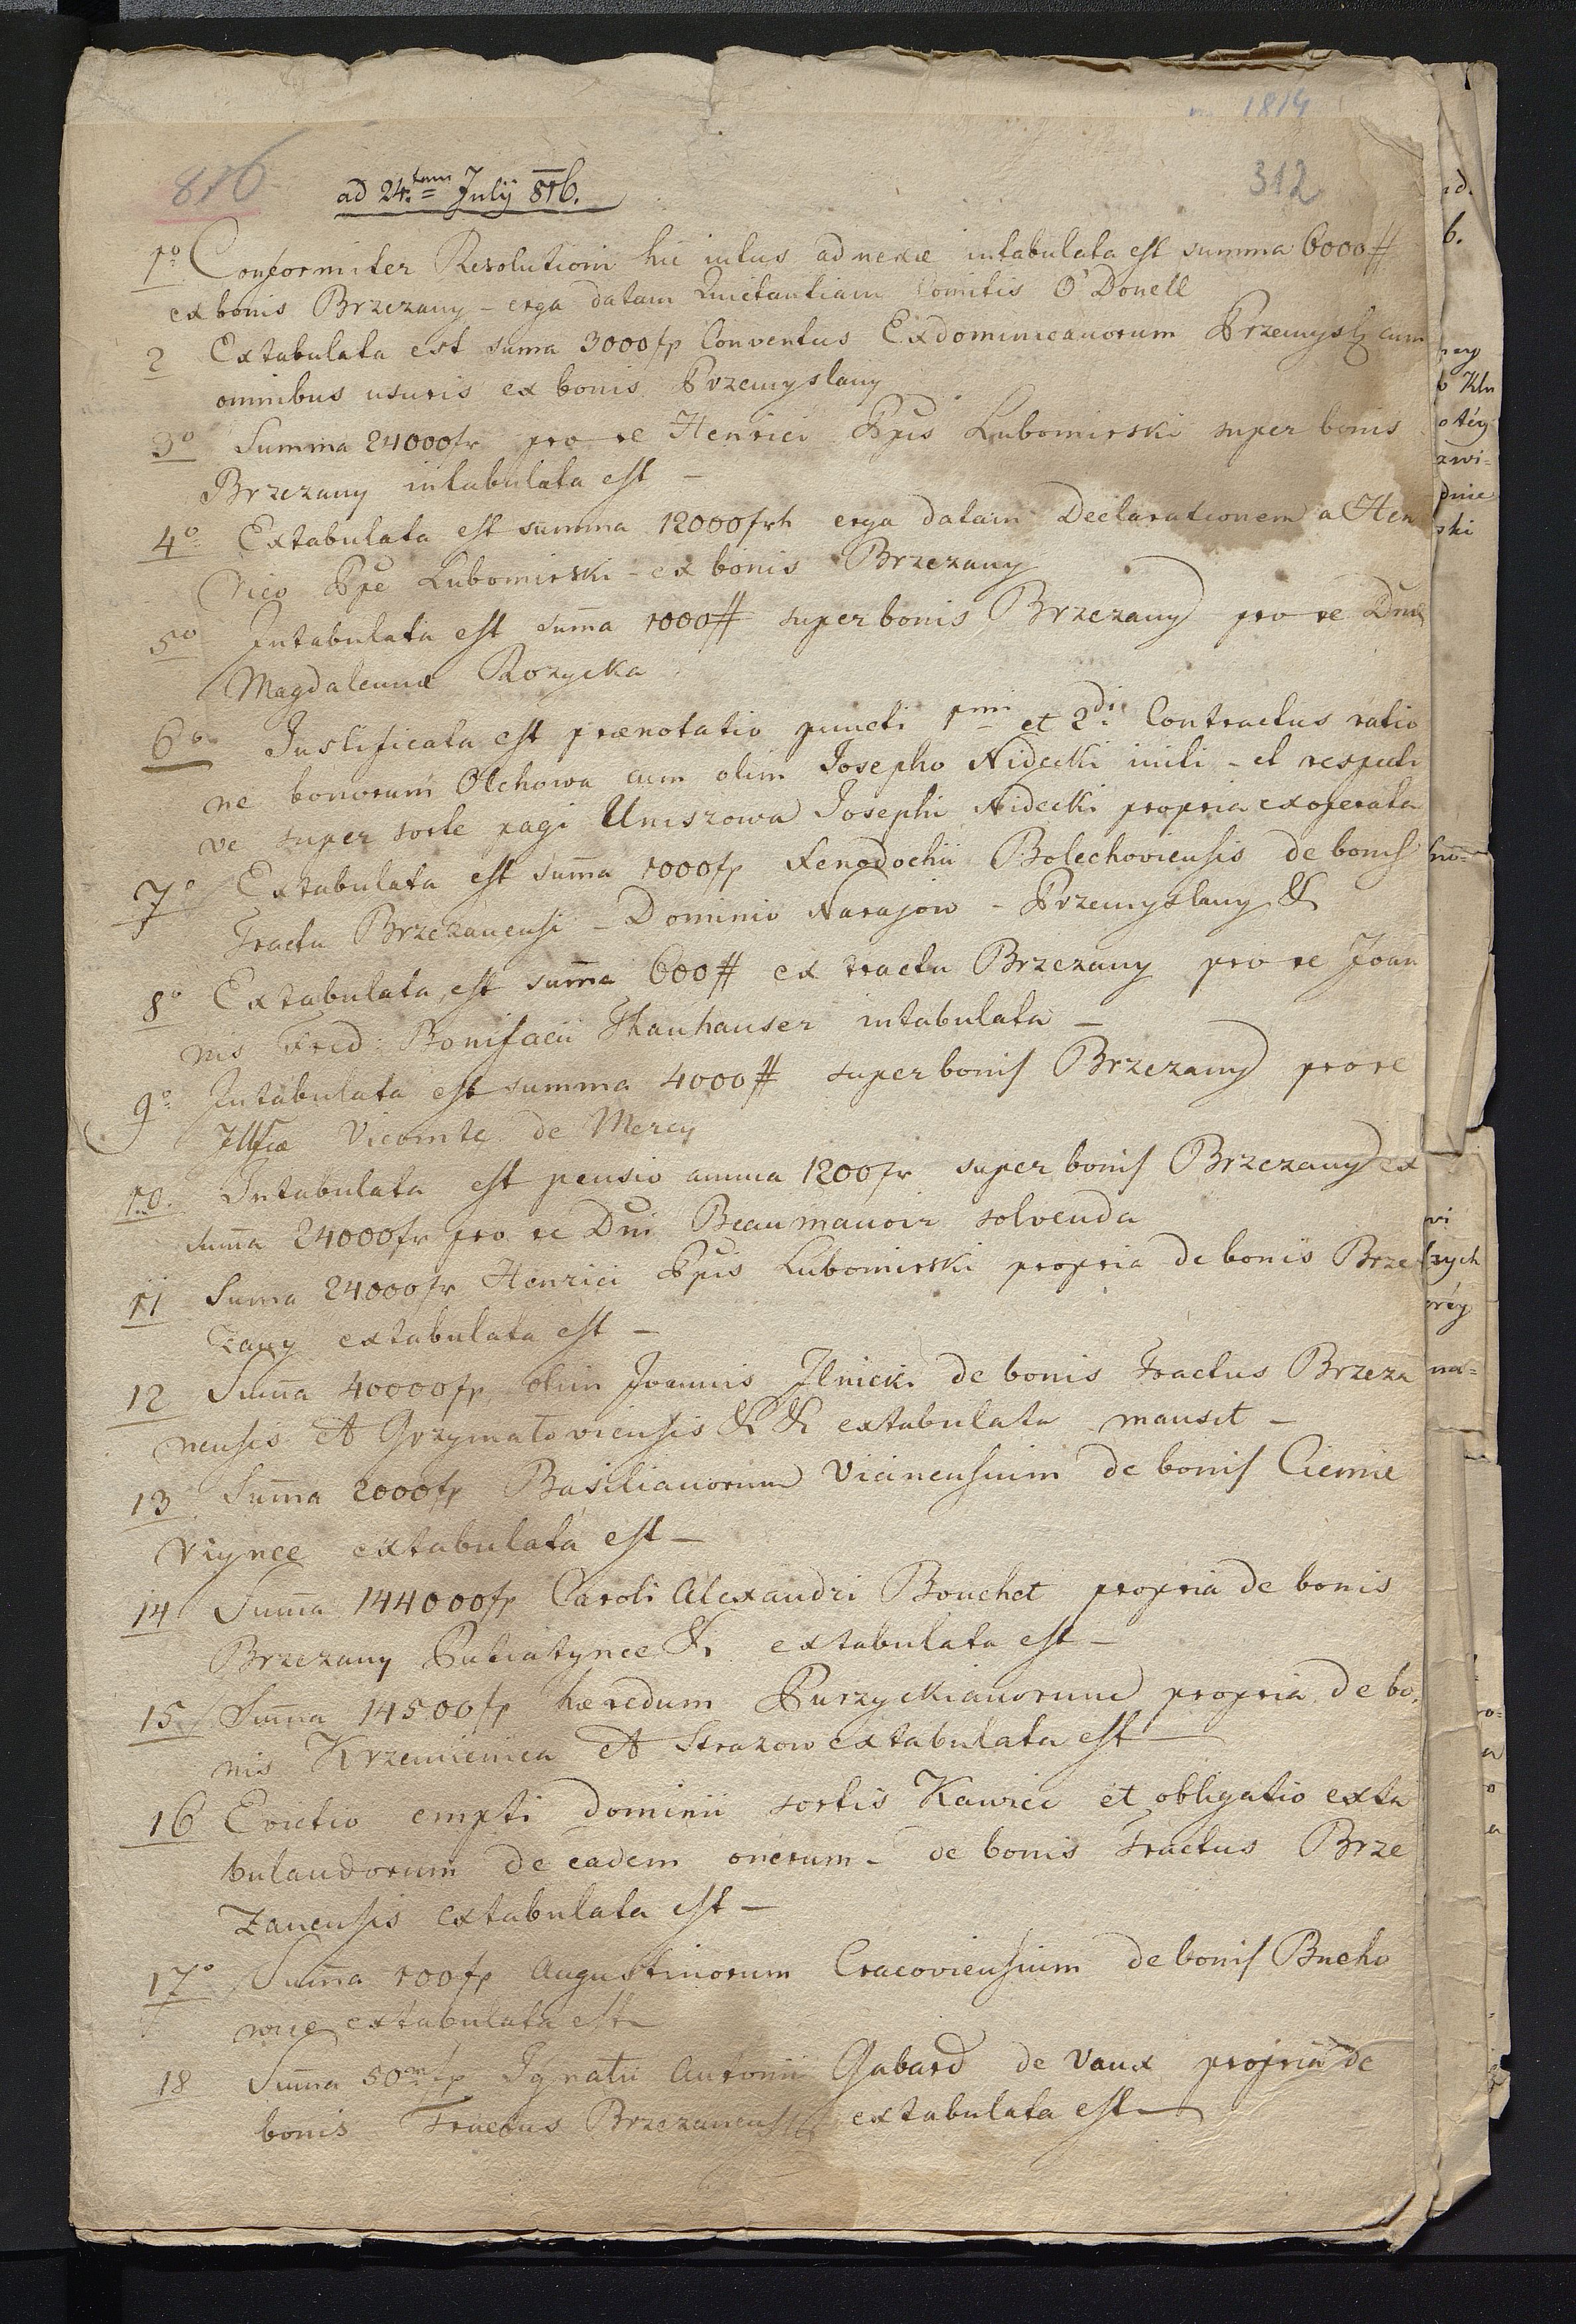 1814
816
312
ad 24.tam July 816.
1o Conformiter Resolutioni hic intus adnexæ intabulata est summa 6000#
ex bonis Brzezany - erga datam Quietantiam Comitis O'Donell
2 Extabulata est suma 3000fp Conventus Exdominicanorum Przemysl cum
omnibus usuris ex bonis Przemyslany
3o Summa 24000fr pro re Henrici Ppis Lubomirski super bonis
Brzezany intabulata est -
4o Extabulata est summa 12000frh erga datam Declarationem a Hen
rico Ppe Lubomirski - ex bonis Brzezany
5o Intabulata est suma 1000# super bonis Brzezany pro re Dnæ
Magdalennæ Rozycka
6o Justificata est prænotatio puncti 1mi et 2di Contractus ratio
ne bonorum Olchowa cum olim Josepho Nidecki initi - et respecti
ve super sorte pagi Uniszowa Josephi Nidecki propria exoperata
7o Extabulata est suma 1000fp Xenodochii Bolechoviensis de bonis
Tractu Brzezanensi - Dominio Narajow - Przemyslany &
8o Extabulata est suma 600# ex tractu Brzezany pro re Joan
nis Fred: Bonifacii Thanhauser intabulata -
9o Intabulata est summa 4000# super bonis Brzezany pro re
Vicomte de Mercy
10. Intabulata est pensio annua 1200fr super bonis Brzezany ex
suma 24000fr pro re Dni Beaumanoir solvenda
11 Suma 24000fr Henrici Ppis Lubomirski propria de bonis Brze
zany extabulata est -
12 Suma 40000fp olim Joannis Ilnicki de bonis Tractus Brzeza
nensis et Grzymałoviensis & & extabulata mansit -
13 Suma 2000fp Basilianorum Vicinensium de bonis Ciemie
rzynce extabulata est -
14 Suma 144000fp Caroli Alexandri Bouchet propria de bonis
Brzezany Putiatynce & extabulata est -
15 Suma 14500fp hæredum Purzyckianorum propria de bo
nis Krzemienica et Strazow extabulata est -
16 Evictio empti dominii sortis Kawiec et obligatio exta
bulandorum de eadem onerum - de bonis Tractus Brze
zanensis extabulata est -
17o Suma 100fp Augustinorum Cracoviensium de bonis Bucho
wice extabulata est
18 Suma 50m fp Ignatii Antonii Gabard de Vaux propria de
bonis Tractus Brzezanensis extabulata est